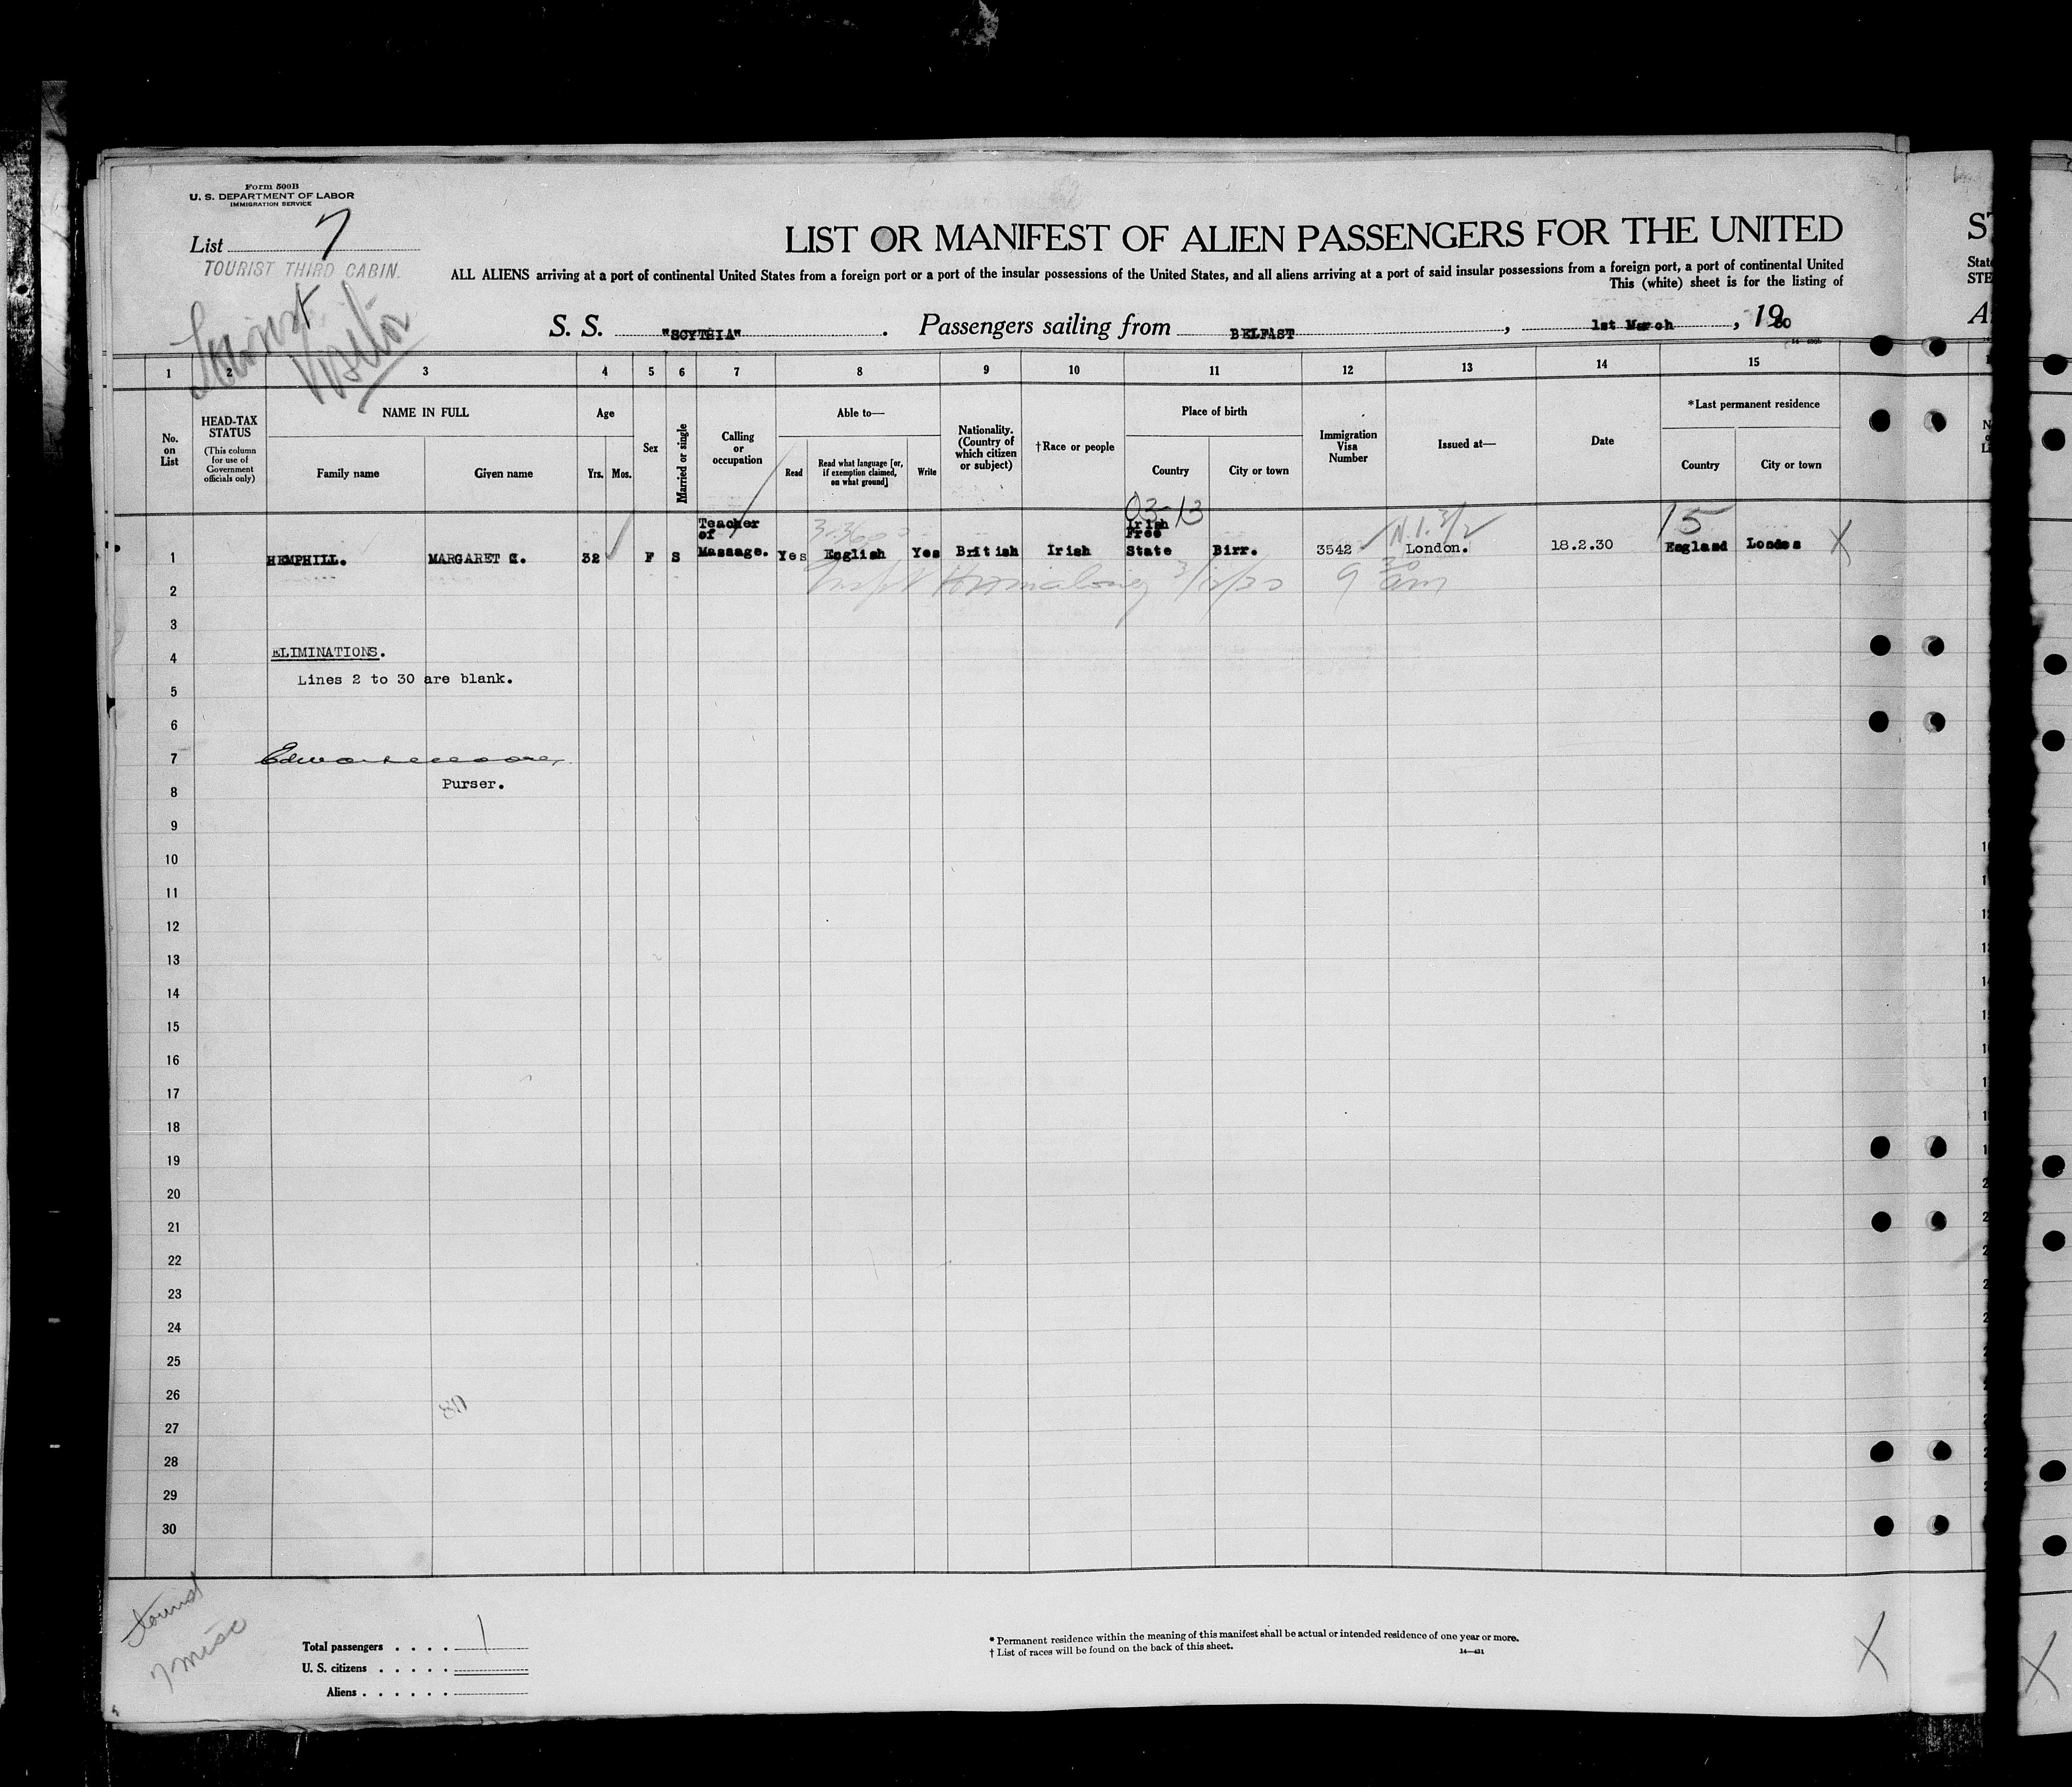 Form 500B
U. S. DEPARTMENT OF LABOR
IMMIGRATION SERVICE
List 7
TOURIST THIRD CABIN.
Tourist
Visitor
LIST OR MANIFEST OF ALIEN PASSENGERS FOR THE UNITED
ALL ALIENS arriving at a port of continental United States from a foreign port or a port of the insular possessions of the United States, and all aliens arriving at a port of said insular possessions from a foreign port, a port of continental United
This (white) sheet is for the listing of
S. S. "SCYTHIA". Passengers sailing from BELFAST, 1st March, 1930
1 2 3 4 5 6 7 8 9 10 11 12 13 14 15
No. on List
HEAD-TAX STATUS
(This column for use of Government officials only)
NAME IN FULL
Family name
Given name
Age
Yrs. Mos.
Sex
Married or single
Calling or occupation
Able to—
Read
Read what language [or, if exemption claimed, on what ground]
Write
Nationality. (Country of which citizen or subject)
†Race or people
Place of birth
Country
City or town
Immigration Visa Number
Issued at—
Date
*Last permanent residence
Country
City or town
03-13
15
1 HEMPHILL. MARGARET C. 32 F S Teacher of Massage. Yes English Yes British Irish Irish Free State Birr. 3542 London. 18.2.30 England London X
9 30 am
2
3
4
ELIMINATIONS.
Lines 2 to 30 are blank.
5
6
7
Purser.
8
9
10
11
12
13
14
15
16
17
18
19
20
21
22
23
24
25
26
27
28
29
30
Total passengers . . . . 1
U. S. citizens . . . . .
Aliens . . . . . .
* Permanent residence within the meaning of this manifest shall be actual or intended residence of one year or more.
† List of races will be found on the back of this sheet.
14—431
X
X